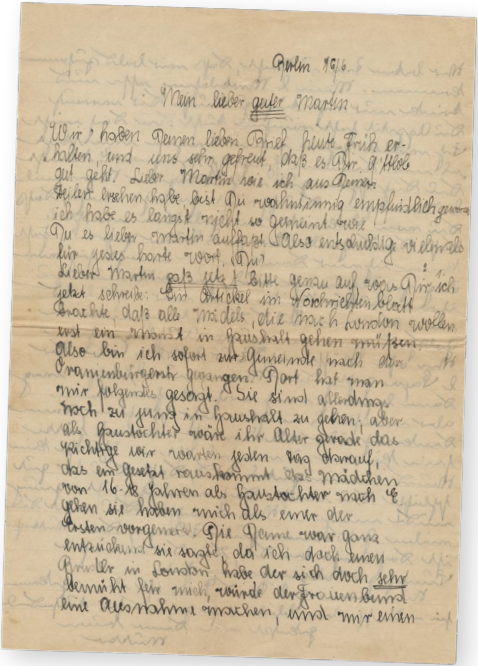 Berlin 16/6.
Mein lieber guter Martin
Wir haben Deinen lieben Brief heute Früh er-
halten, und uns sehr gefreut, daß es Dir G'ttlob
gut geht. Lieber Martin wie ich aus Deinen
Zeilen ersehen habe bist Du wahnsinnig empfindlich geworden
ich habe es längst nicht so gemeint wie
Du es lieber Martin auffaßt. Also entschuldige vielmals
für jedes harte Wort,
Lieber Martin paß jetz! bitte genau auf was Dir ich
jetzt schreibe: Ein Artickel im Nachrichtenblatt
brachte, daß alle Mädels, die nach London wollen
erst ein Monat in Haushalt gehen müssen
Also bin ich sofort zur Gemeinde nach der
Oranienburgerstr gegangen. Dort hat man
mir folgendes gesagt. Sie sind allerdings
noch zu jung in Haushalt zu gehen, aber
als Haustochter wäre ihr Alter gerade das
richtige wir warten jeden Tag darauf,
das ein Gesetzt rauskommt das Mädchen
von 16-18 Jahren als Haustochter nach E.
gehen sie haben mich als einer der
Ersten vorgemerkt. Die Dame war ganz
entzückend sie sagte, da ich doch einen
Bruder in London habe der sich doch sehr
bemüht für mich, würde der Frauenbund
eine Ausnahme machen, und mir einen